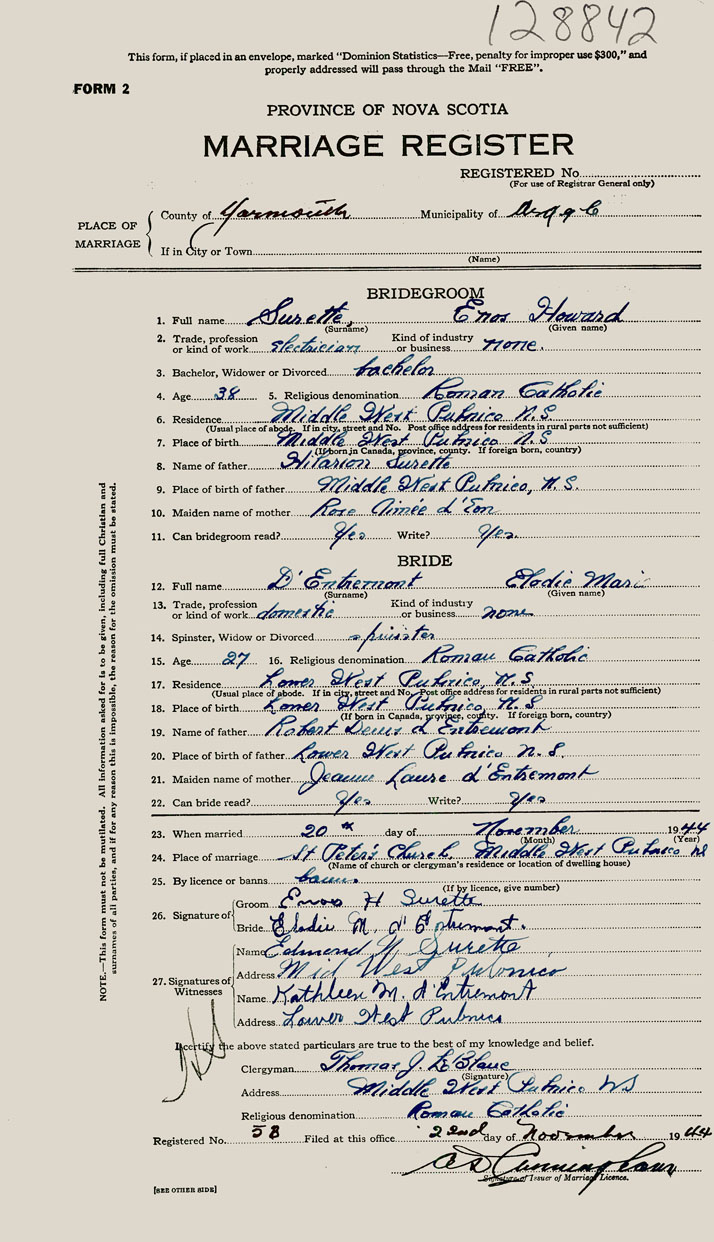 128842
This form, if placed in an envelope, marked "Dominion Statistics—Free, penalty for improper use $300," and
properly addressed will pass through the Mail "FREE".
FORM 2
PROVINCE OF NOVA SCOTIA
MARRIAGE REGISTER
REGISTERED No.
(For use of Registrar General only)
PLACE OF MARRIAGE
County of Yarmouth Municipality of
If in City or Town
(Name)
BRIDEGROOM
1. Full name Surette, Enos Howard
(Surname) (Given name)
2. Trade, profession or kind of work electrician Kind of industry or business none.
3. Bachelor, Widower or Divorced bachelor
4. Age 38 5. Religious denomination Roman Catholic
6. Residence Middle West Pubnico N.S
(Usual place of abode. If in city, street and No. Post office address for residents in rural parts not sufficient)
7. Place of birth Middle West Pubnico N.S
(If born in Canada, province, county. If foreign born, country)
8. Name of father Hilarion Surette
9. Place of birth of father Middle West Pubnico, N.S.
10. Maiden name of mother Rose Aimée d'Eon
11. Can bridegroom read? Yes Write? Yes.
BRIDE
12. Full name D'Entremont Elodie Marie
(Surname) (Given name)
13. Trade, profession or kind of work domestic Kind of industry or business none
14. Spinster, Widow or Divorced spinster
15. Age 27 16. Religious denomination Roman Catholic
17. Residence Lower West Pubnico, N.S
(Usual place of abode. If in city, street and No. Post office address for residents in rural parts not sufficient)
18. Place of birth Lower West Pubnico, N.S
(If born in Canada, province, county. If foreign born, country)
19. Name of father Robert Denis d'Entremont
20. Place of birth of father Lower West Pubnico N.S.
21. Maiden name of mother Jeanne Laure d'Entremont
22. Can bride read? Yes Write? Yes
23. When married 20th day of November 1944
(Month) (Year)
24. Place of marriage St Peter's Church, Middle West Pubnico NS
(Name of church or clergyman's residence or location of dwelling house)
25. By licence or banns banns.
(If by licence, give number)
26. Signature of
Groom Enos H Surette
Bride Elodie M. d'Entremont.
27. Signatures of Witnesses
Name Edmond Surette
Address Mid West Pubnico
Name Kathleen M. d'Entremont
Address Lower West Pubnico
I certify the above stated particulars are true to the best of my knowledge and belief.
Clergyman Thomas J. LeBlanc
(Signature)
Address Middle West Pubnico NS
Religious denomination Roman Catholic
Registered No. 58 Filed at this office 22nd day of November 1944
Cunningham
Signature of Issuer of Marriage Licence.
[SEE OTHER SIDE]
NOTE.—This form must not be mutilated. All information asked for is to be given, including full Christian and
surnames of all parties, and if for any reason this is impossible, the reason for the omission must be stated.